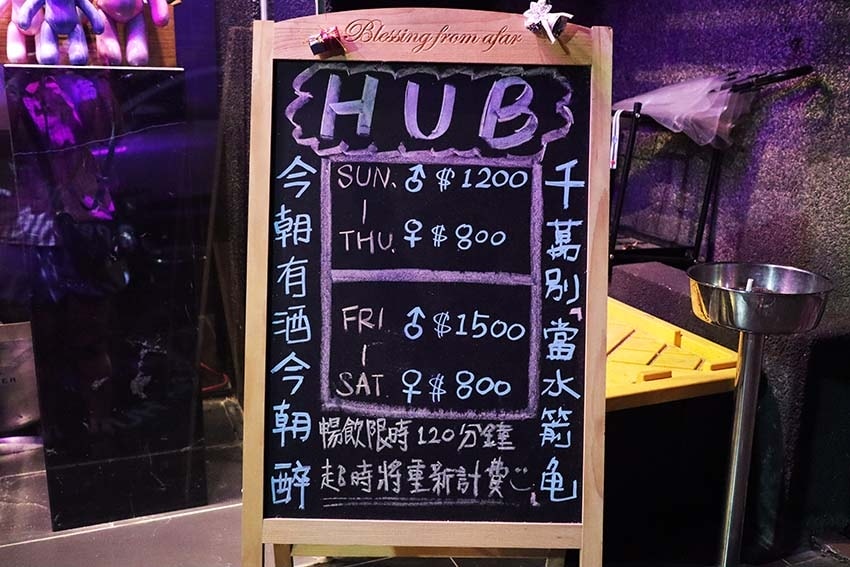 Blessing from afar
HUB
今朝有酒今朝醉
SUN. ♂ $1200
|
THU. ♀ $800
FRI ♂ $1500
|
SAT ♀ $800
千萬別當水箭龟
暢飲限時120分鐘
超時將重新計費